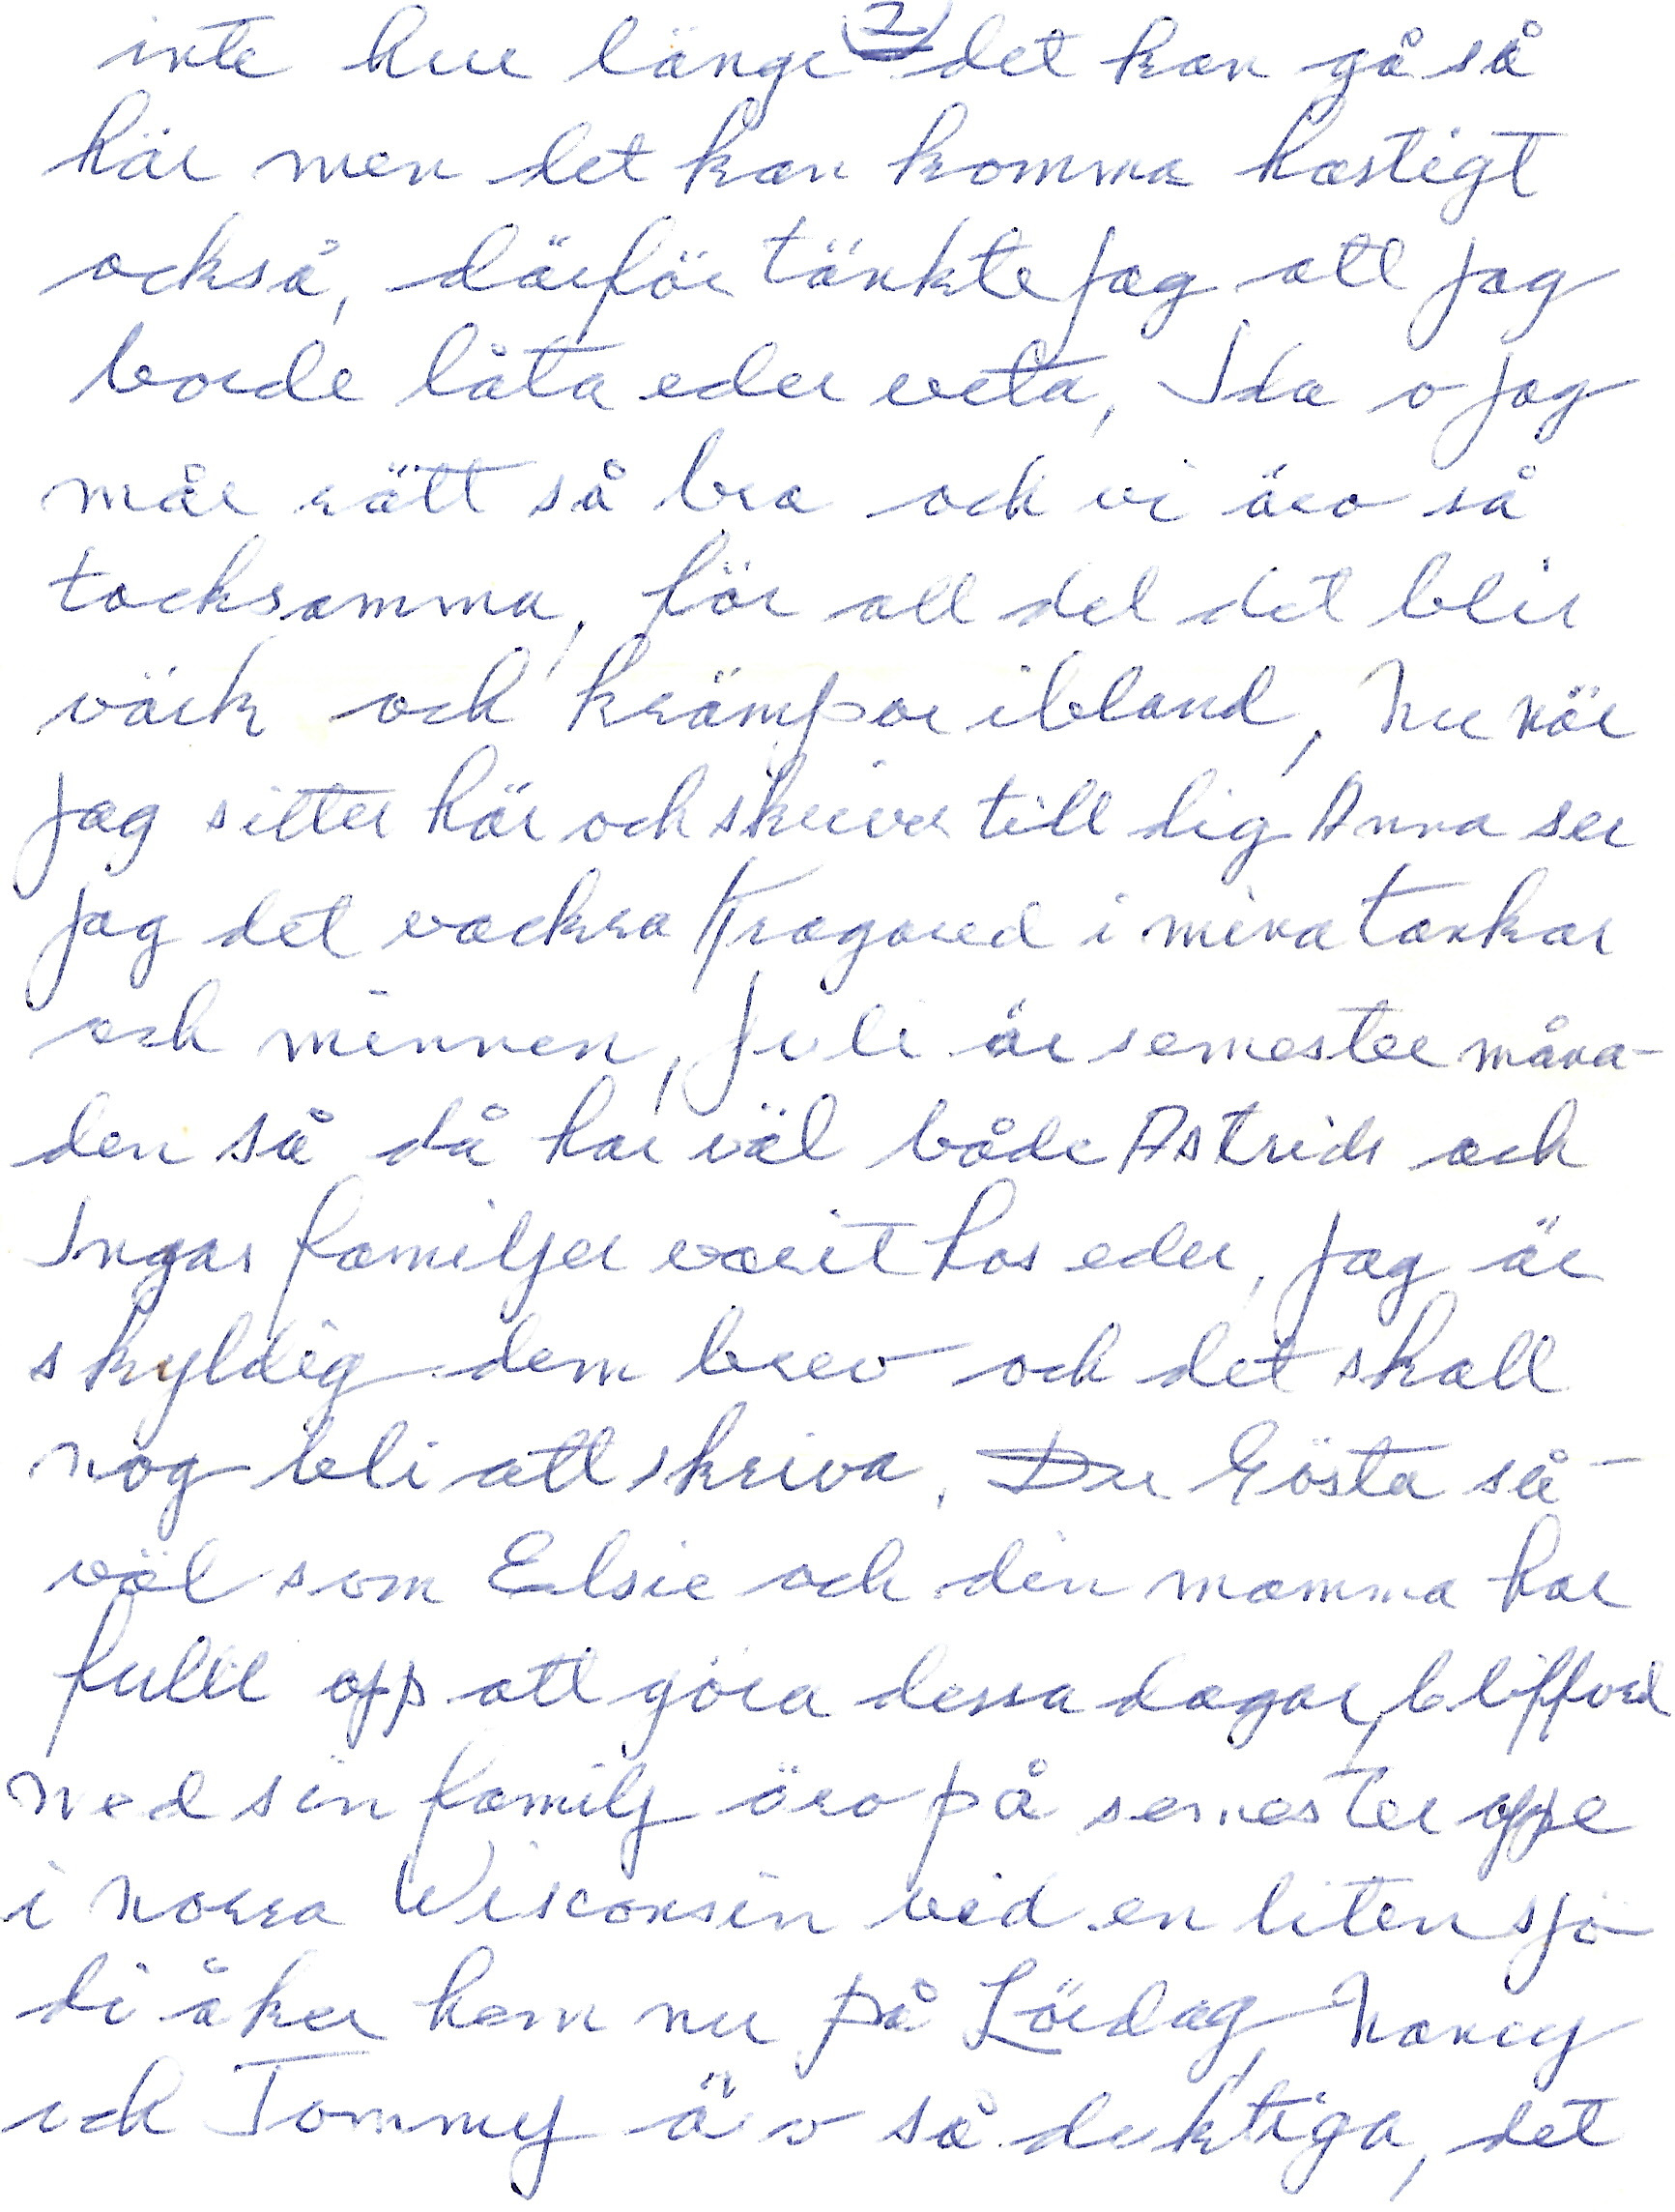 2)
inte hur länge det kan gå så
här men det kan komma hastigt
också, därför tänkte jag att jag
borde låta eder veta, Ida o jag
mår rätt så bra och vi äro så
tacksamma, för all del det blir
värk och krämpor ibland, Nu när
jag sitter här och skriver till dig Anna ser
jag det vackra Kragared i mina tankar
och minnen, Juli är semester måna-
den så då har väl både Astrids och
Ingas familjer varit hos eder, jag är
skyldig dem brev och det skall
nog bli att skriva. Du Gösta så-
väl som Elsie och din mamma har
fullt opp att göra dessa dagar, Clifford
med sin familj äro på semester oppe
i norra Wisconsin vid en liten sjö
di åker hem nu på Lördag, Nancy
och Tommy äro så duktiga, det